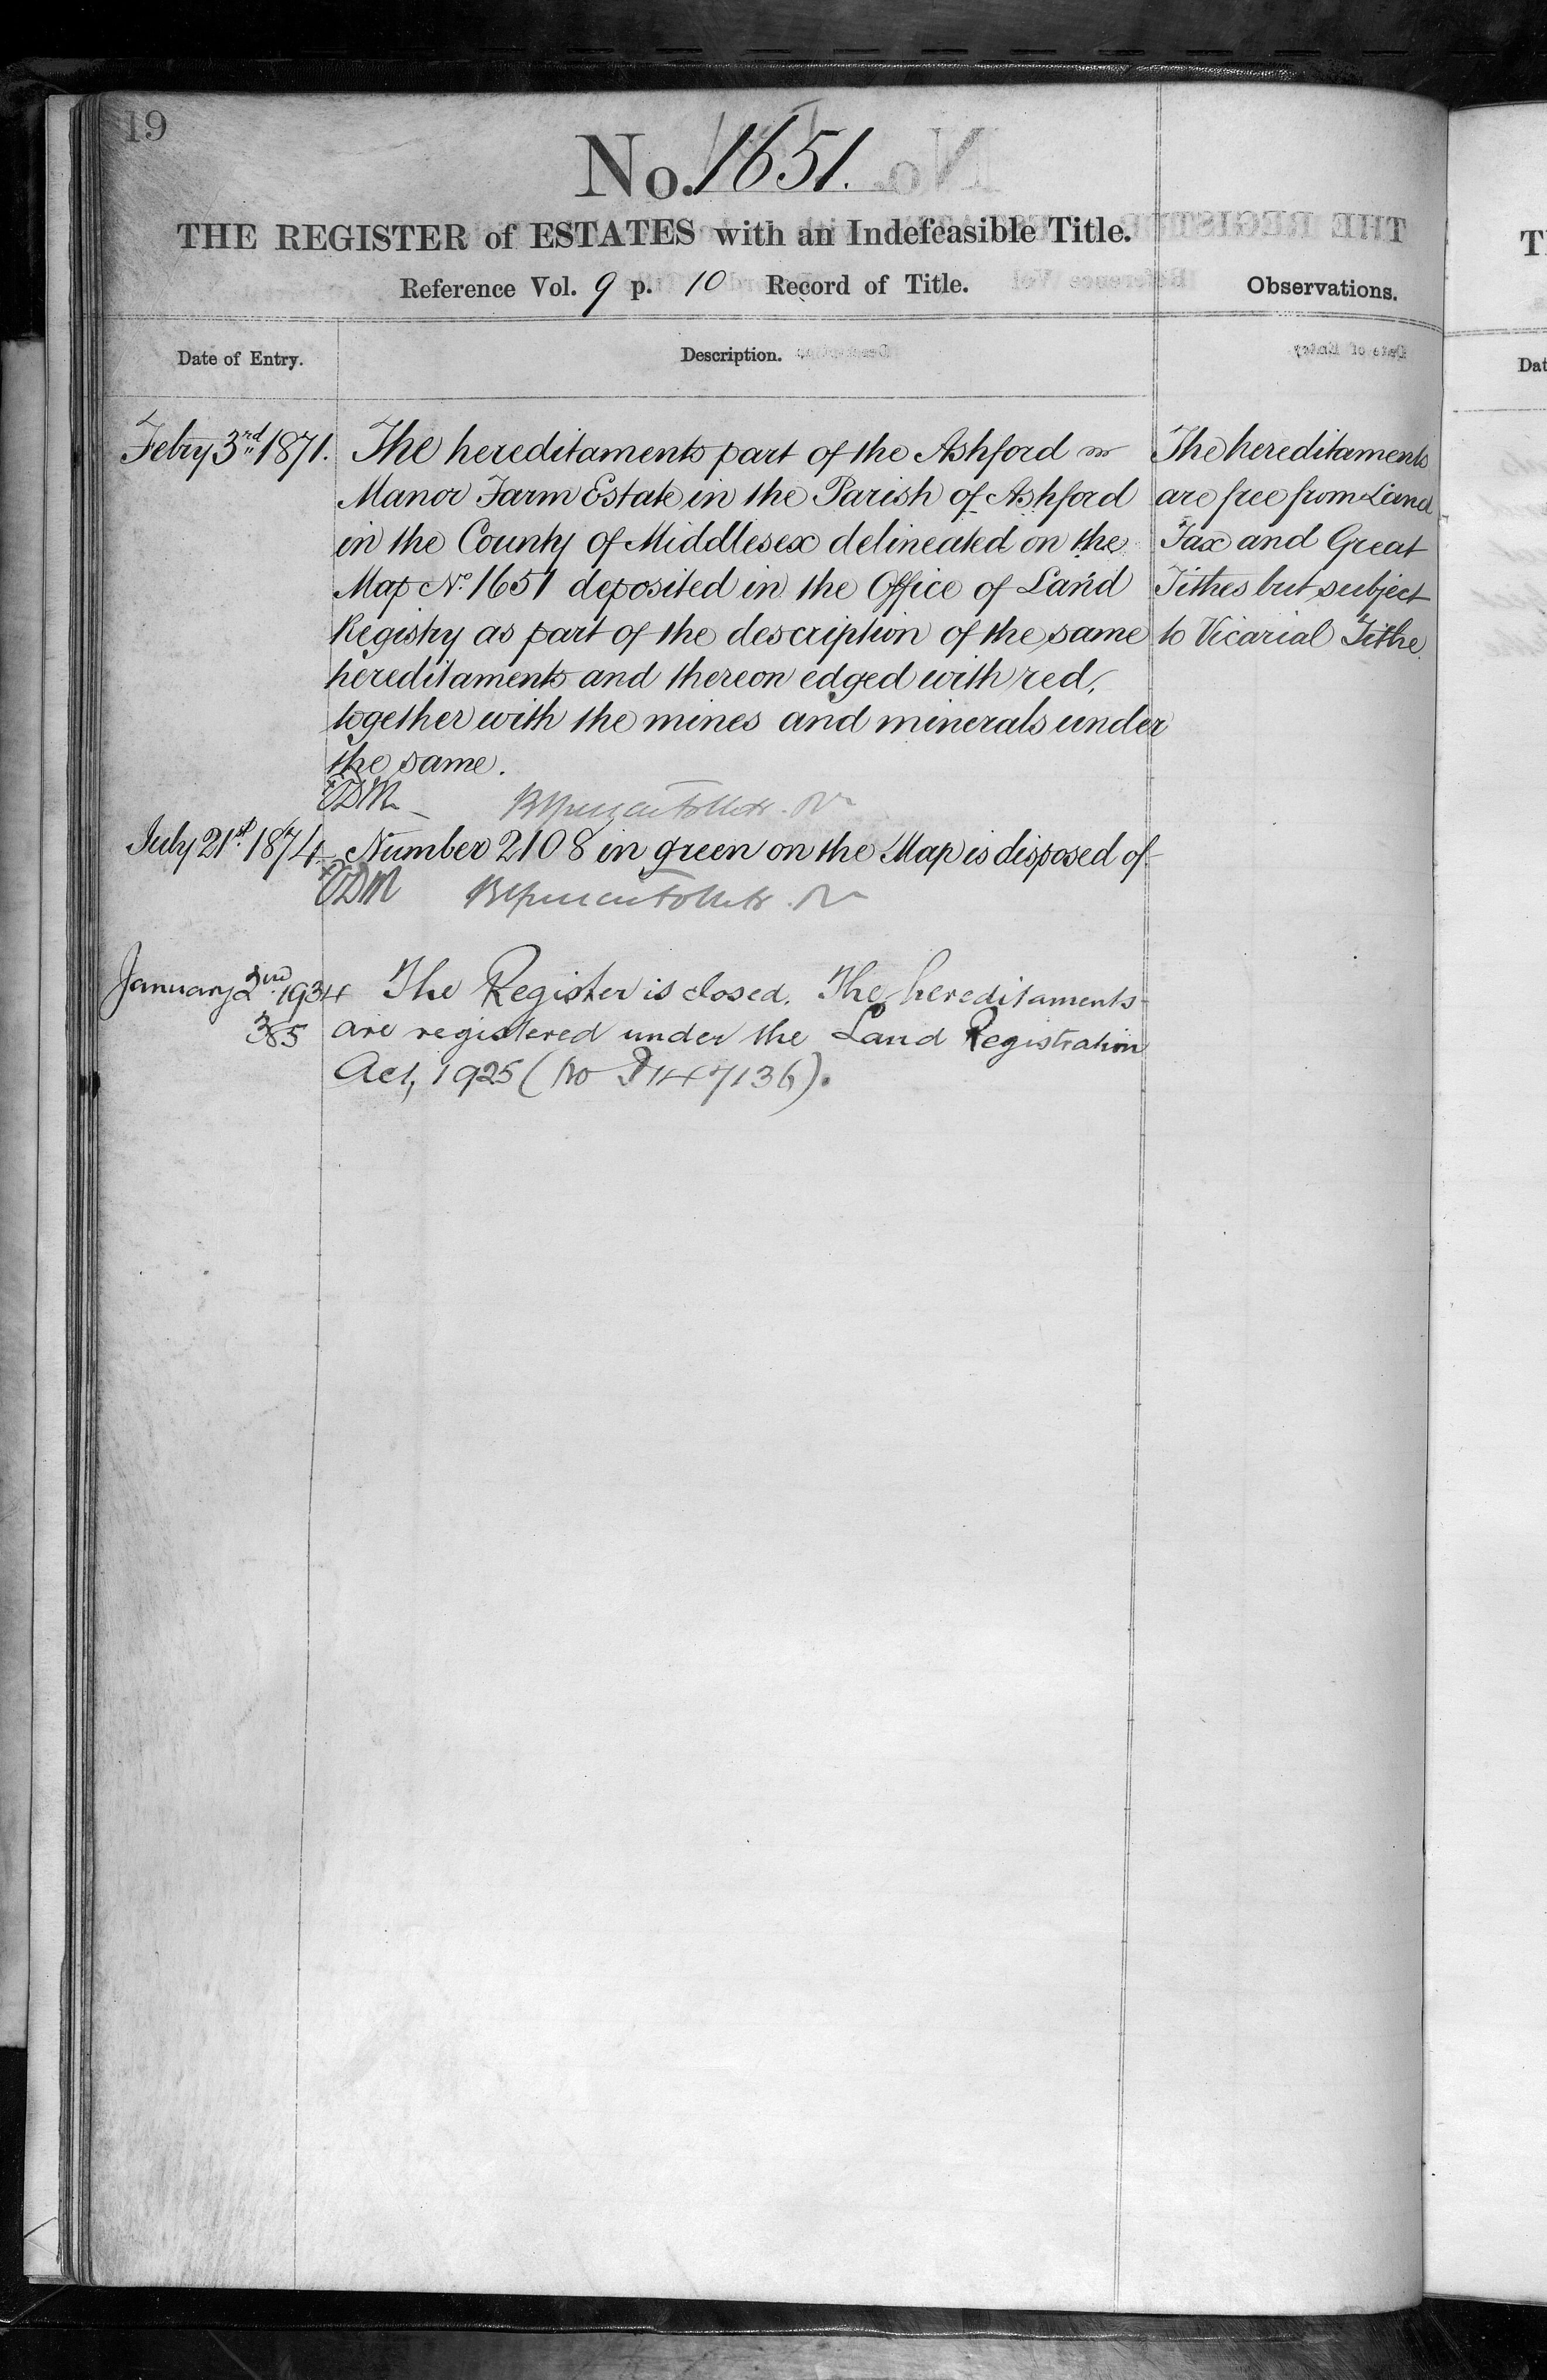 19
No. 1651.
THE REGISTER of ESTATES with an Indefeasible Title.
Reference Vol. 9 p. 10 Record of Title.
Observations.
Date of Entry.
Description.
Febry 3rd 1871.
The hereditaments part of the Ashford
Manor Farm Estate in the Parish of Ashford
in the County of Middlesex delineated on the
Map No. 1651 deposited in the Office of Land
Registry as part of the description of the same
hereditaments and thereon edged with red,
together with the mines and minerals under
the same.
The hereditaments
are free from Land
Tax and Great
Tithes but subject
to Vicarial Tithe.
July 21st 1874
Number 2108 in green on the Map is disposed of
January 2nd 1934
The Register is closed. The hereditaments
are registered under the Land Registration
Act, 1925 (No P147136).